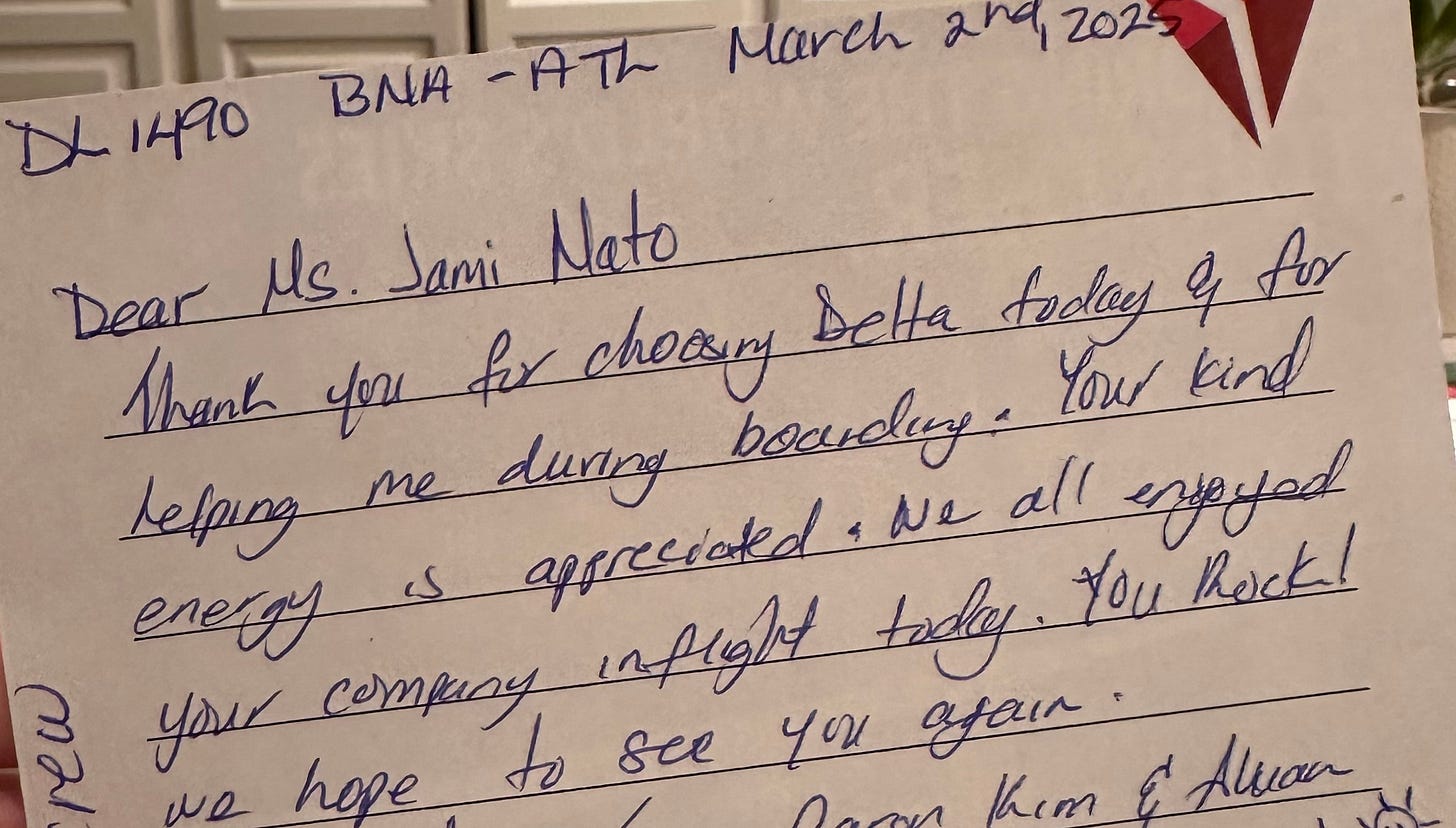 DL 1490 BNA - ATL March 2nd, 2025
Dear Ms. Jami Nato
Thank you for choosing Delta today & for
helping me during boarding. Your kind
energy is appreciated. We all enjoyed
your company inflight today. You Rock!
we hope to see you again.
Kim &
rew